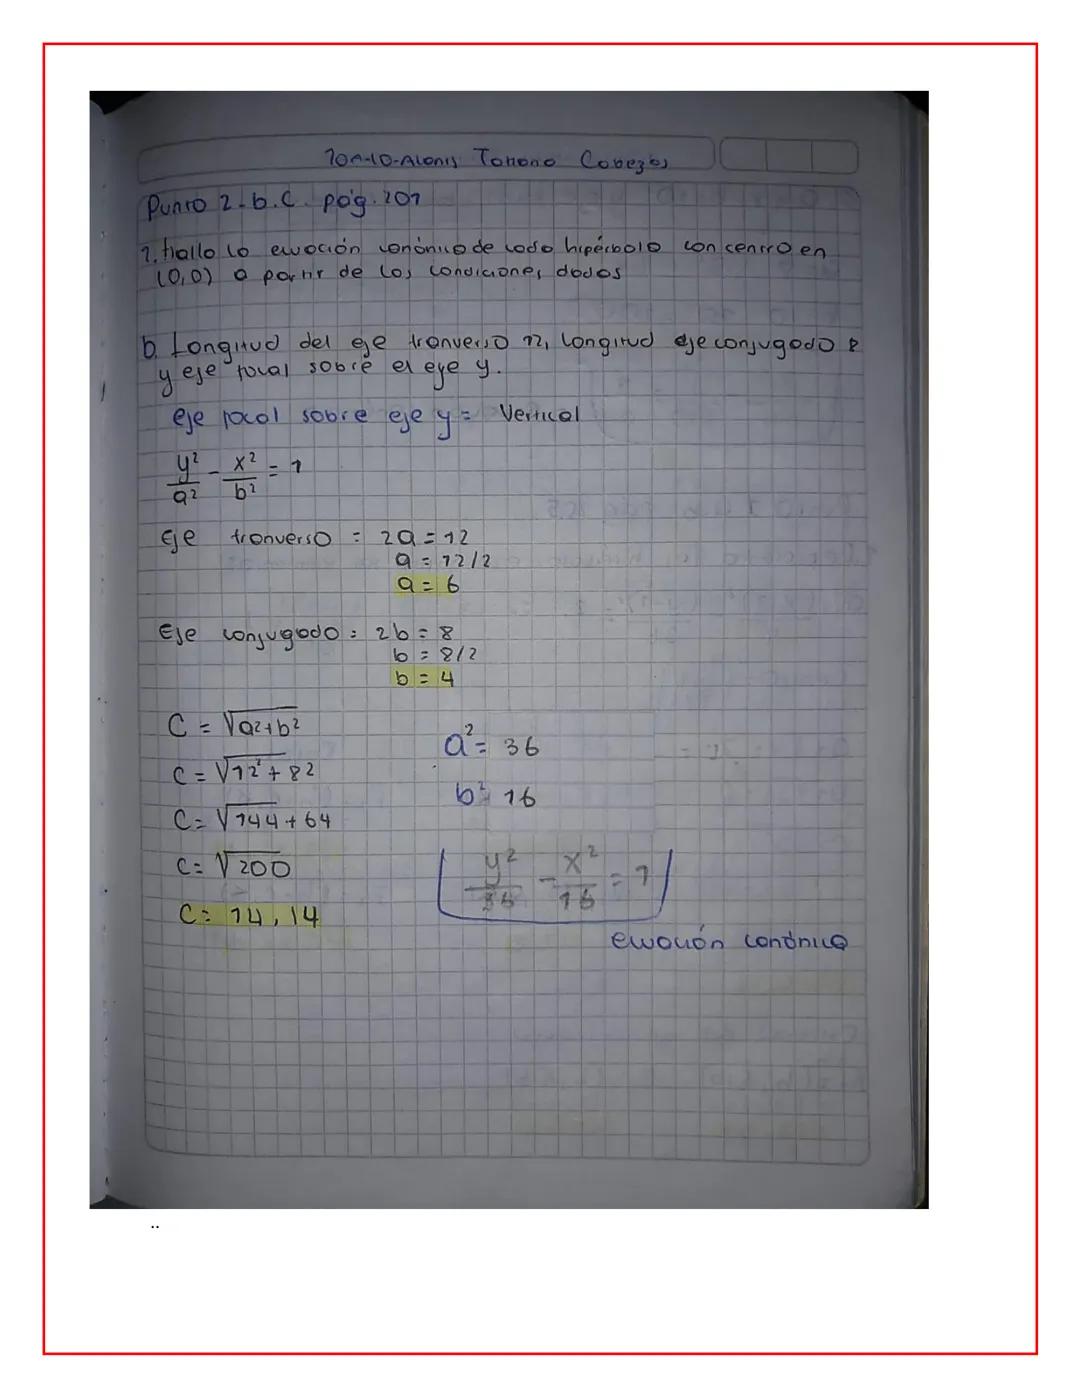 Punto 2-b.C. pág. 201
1. Hallo la ecuación canónica de cada hipérbola con centro en
(0,0) a partir de las condiciones dadas
b. Longitud del eje tranverso 12, longitud eje conjugado 8
y eje focal sobre el eje y.
eje focal sobre eje y = Vertical
y²/a² - x²/b² = 1
Eje tranverso = 2a = 12
a = 12/2
a = 6
Eje conjugado = 2b = 8
b = 8/2
b = 4
C = √a²+b²
C = √12² + 8²
C = √144 + 64
C = √200
C = 14,14
a² = 36
b² = 16
y²/36 - x²/16 = 1
ecuación canónica
..